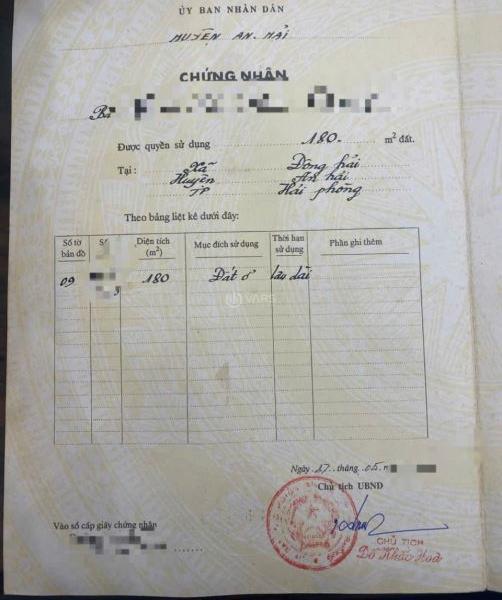 ỦY BAN NHÂN DÂN
HUYỆN AN HẢI
CHỨNG NHẬN
Bà
Được quyền sử dụng 180. m² đất.
Tại : Xã Đông hải
Huyện An hải
TP Hải phòng
Theo bảng liệt kê dưới đây:
Số tờ bản đồ Diện tích (m²) Mục đích sử dụng Thời hạn sử dụng Phần ghi thêm
09 180 Đất ở lâu dài
VARS
Ngày 17 tháng 05
Chủ tịch UBND
Vào sổ cấp giấy chứng nhận
CHỦ TỊCH
Đỗ Khắc Hoà